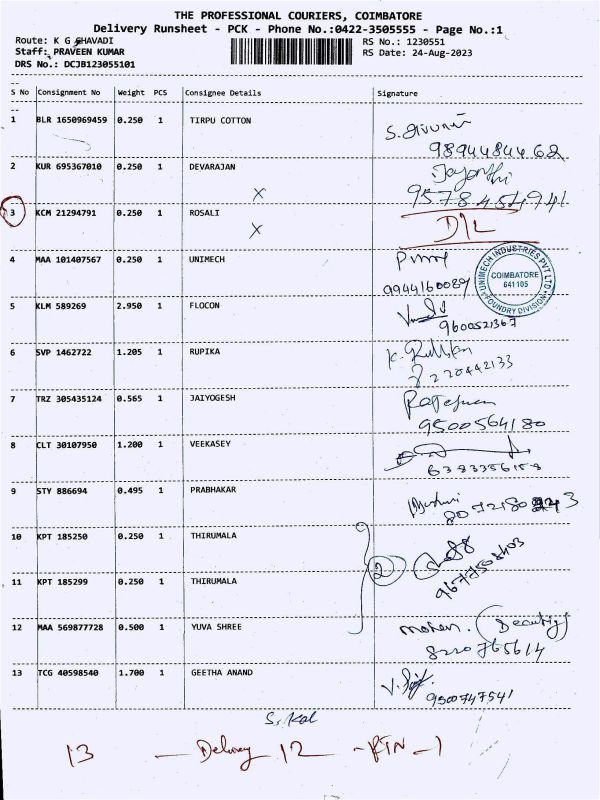 THE PROFESSIONAL COURIERS, COIMBATORE
Delivery Runsheet - PCK - Phone No.:0422-3505555 - Page No.:1
Route: K G CHAVADI
RS No.: 1230551
Staff: PRAVEEN KUMAR
RS Date: 24-Aug-2023
DRS No.: DCJB123055101
S No Consignment No Weight PCS Consignee Details Signature
1 BLR 1650969459 0.250 1 TIRPU COTTON
9894484462
2 KUR 695367010 0.250 1 DEVARAJAN Jayanthi
X 9578454941
3 KCM 21294791 0.250 1 ROSALI D/L
X
4 MAA 101407567 0.250 1 UNIMECH
9944160089
UNIMECH INDUSTRIES PVT LTD
COIMBATORE
641 105
FOUNDRY DIVISION
5 KLM 589269 2.950 1 FLOCON
9600521367
6 SVP 1462722 1.205 1 RUPIKA
8220442133
7 TRZ 305435124 0.565 1 JAIYOGESH
9500564180
8 CLT 30107950 1.200 1 VEEKASEY
9 STY 886694 0.495 1 PRABHAKAR
10 KPT 185250 0.250 1 THIRUMALA
2
11 KPT 185299 0.250 1 THIRUMALA
9677508403
12 MAA 569877728 0.500 1 YUVA SHREE mohan.
8220765614
13 TCG 40598540 1.700 1 GEETHA ANAND
9500747541
13 — Delivery 12 — RTN — 1